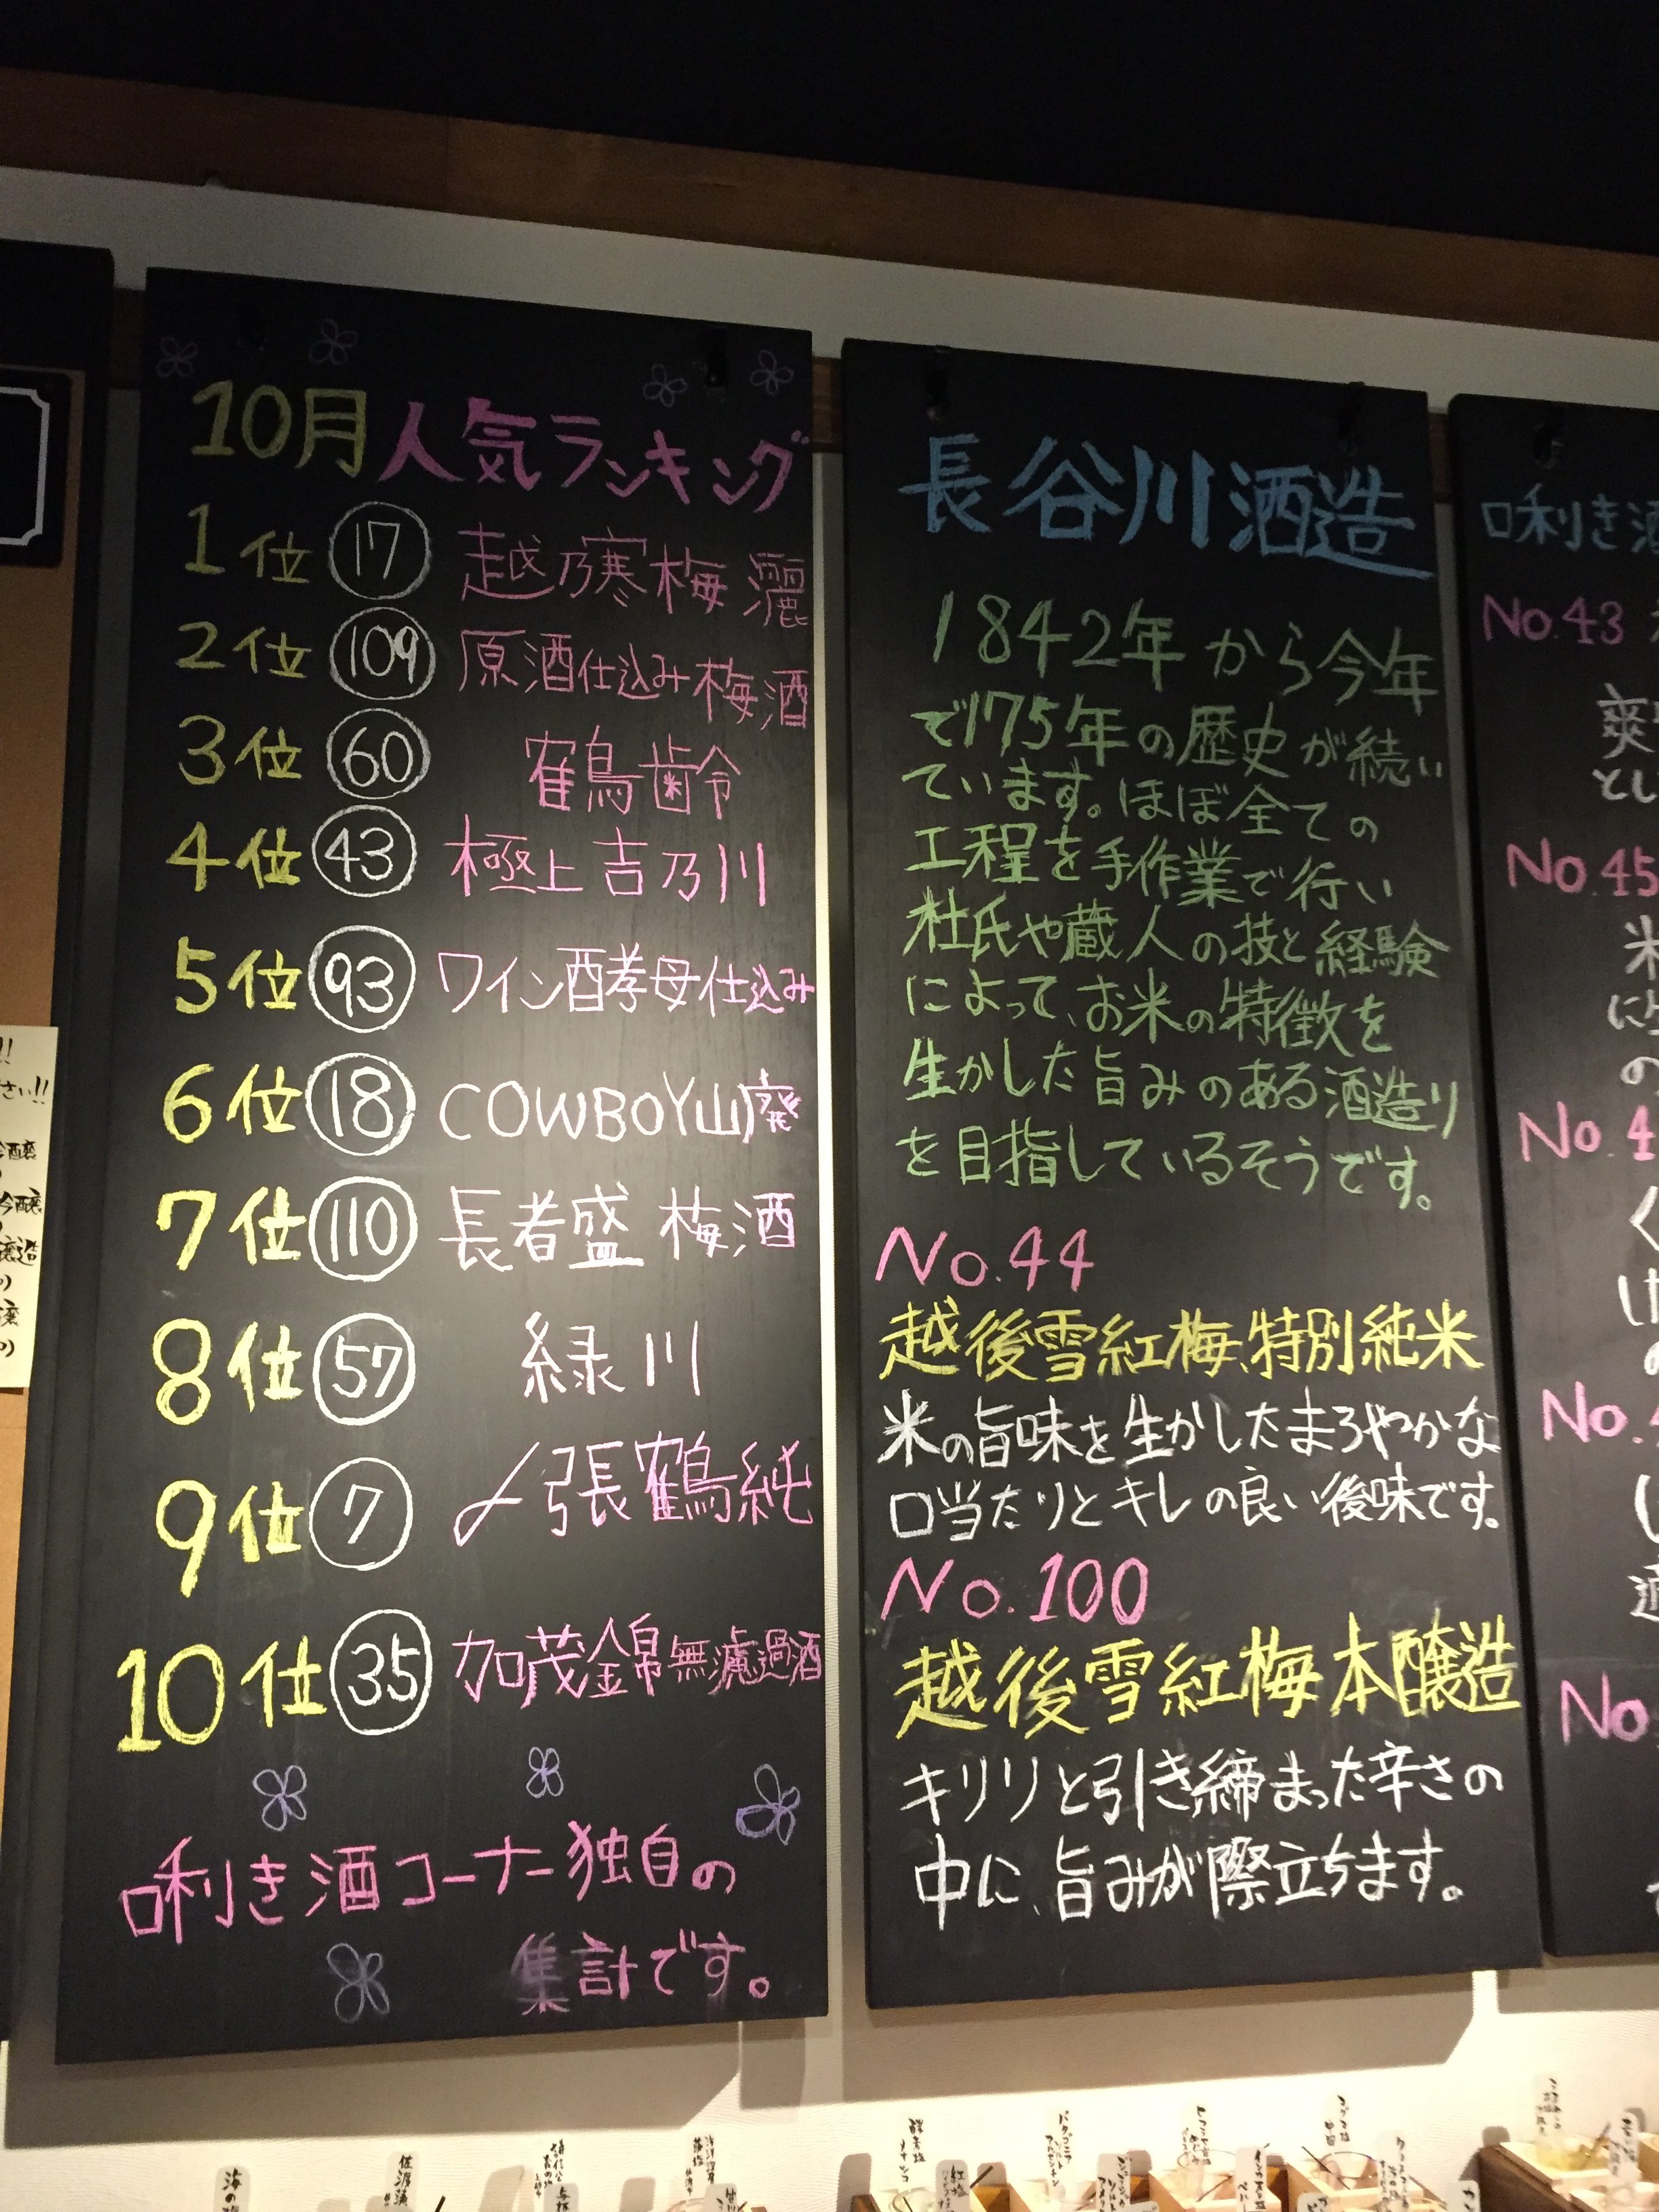 10月人気ランキング
1位 17 越乃寒梅 灑
2位 109 原酒仕込み梅酒
3位 60 鶴齢
4位 43 極上吉乃川
5位 93 ワイン酵母仕込み
6位 18 COWBOY山廃
7位 110 長者盛 梅酒
8位 57 緑川
9位 7 〆張鶴純
10位 35 加茂錦無濾過酒
唎き酒コーナー独自の
集計です。
長谷川酒造
1842年から今年
で175年の歴史が続い
ています。ほぼ全ての
工程を手作業で行い
杜氏や蔵人の技と経験
によって、お米の特徴を
生かした旨みのある酒造り
を目指しているそうです。
No.44
越後雪紅梅、特別純米
米の旨味を生かしたまろやかな
口当たりとキレの良い後味です。
No.100
越後雪紅梅本醸造
キリリと引き締まった辛さの
中に、旨みが際立ちます。
唎き酒
No.43
爽
とし
No.45
米
に
の
No.4
く
け
の
No.
し
適
No